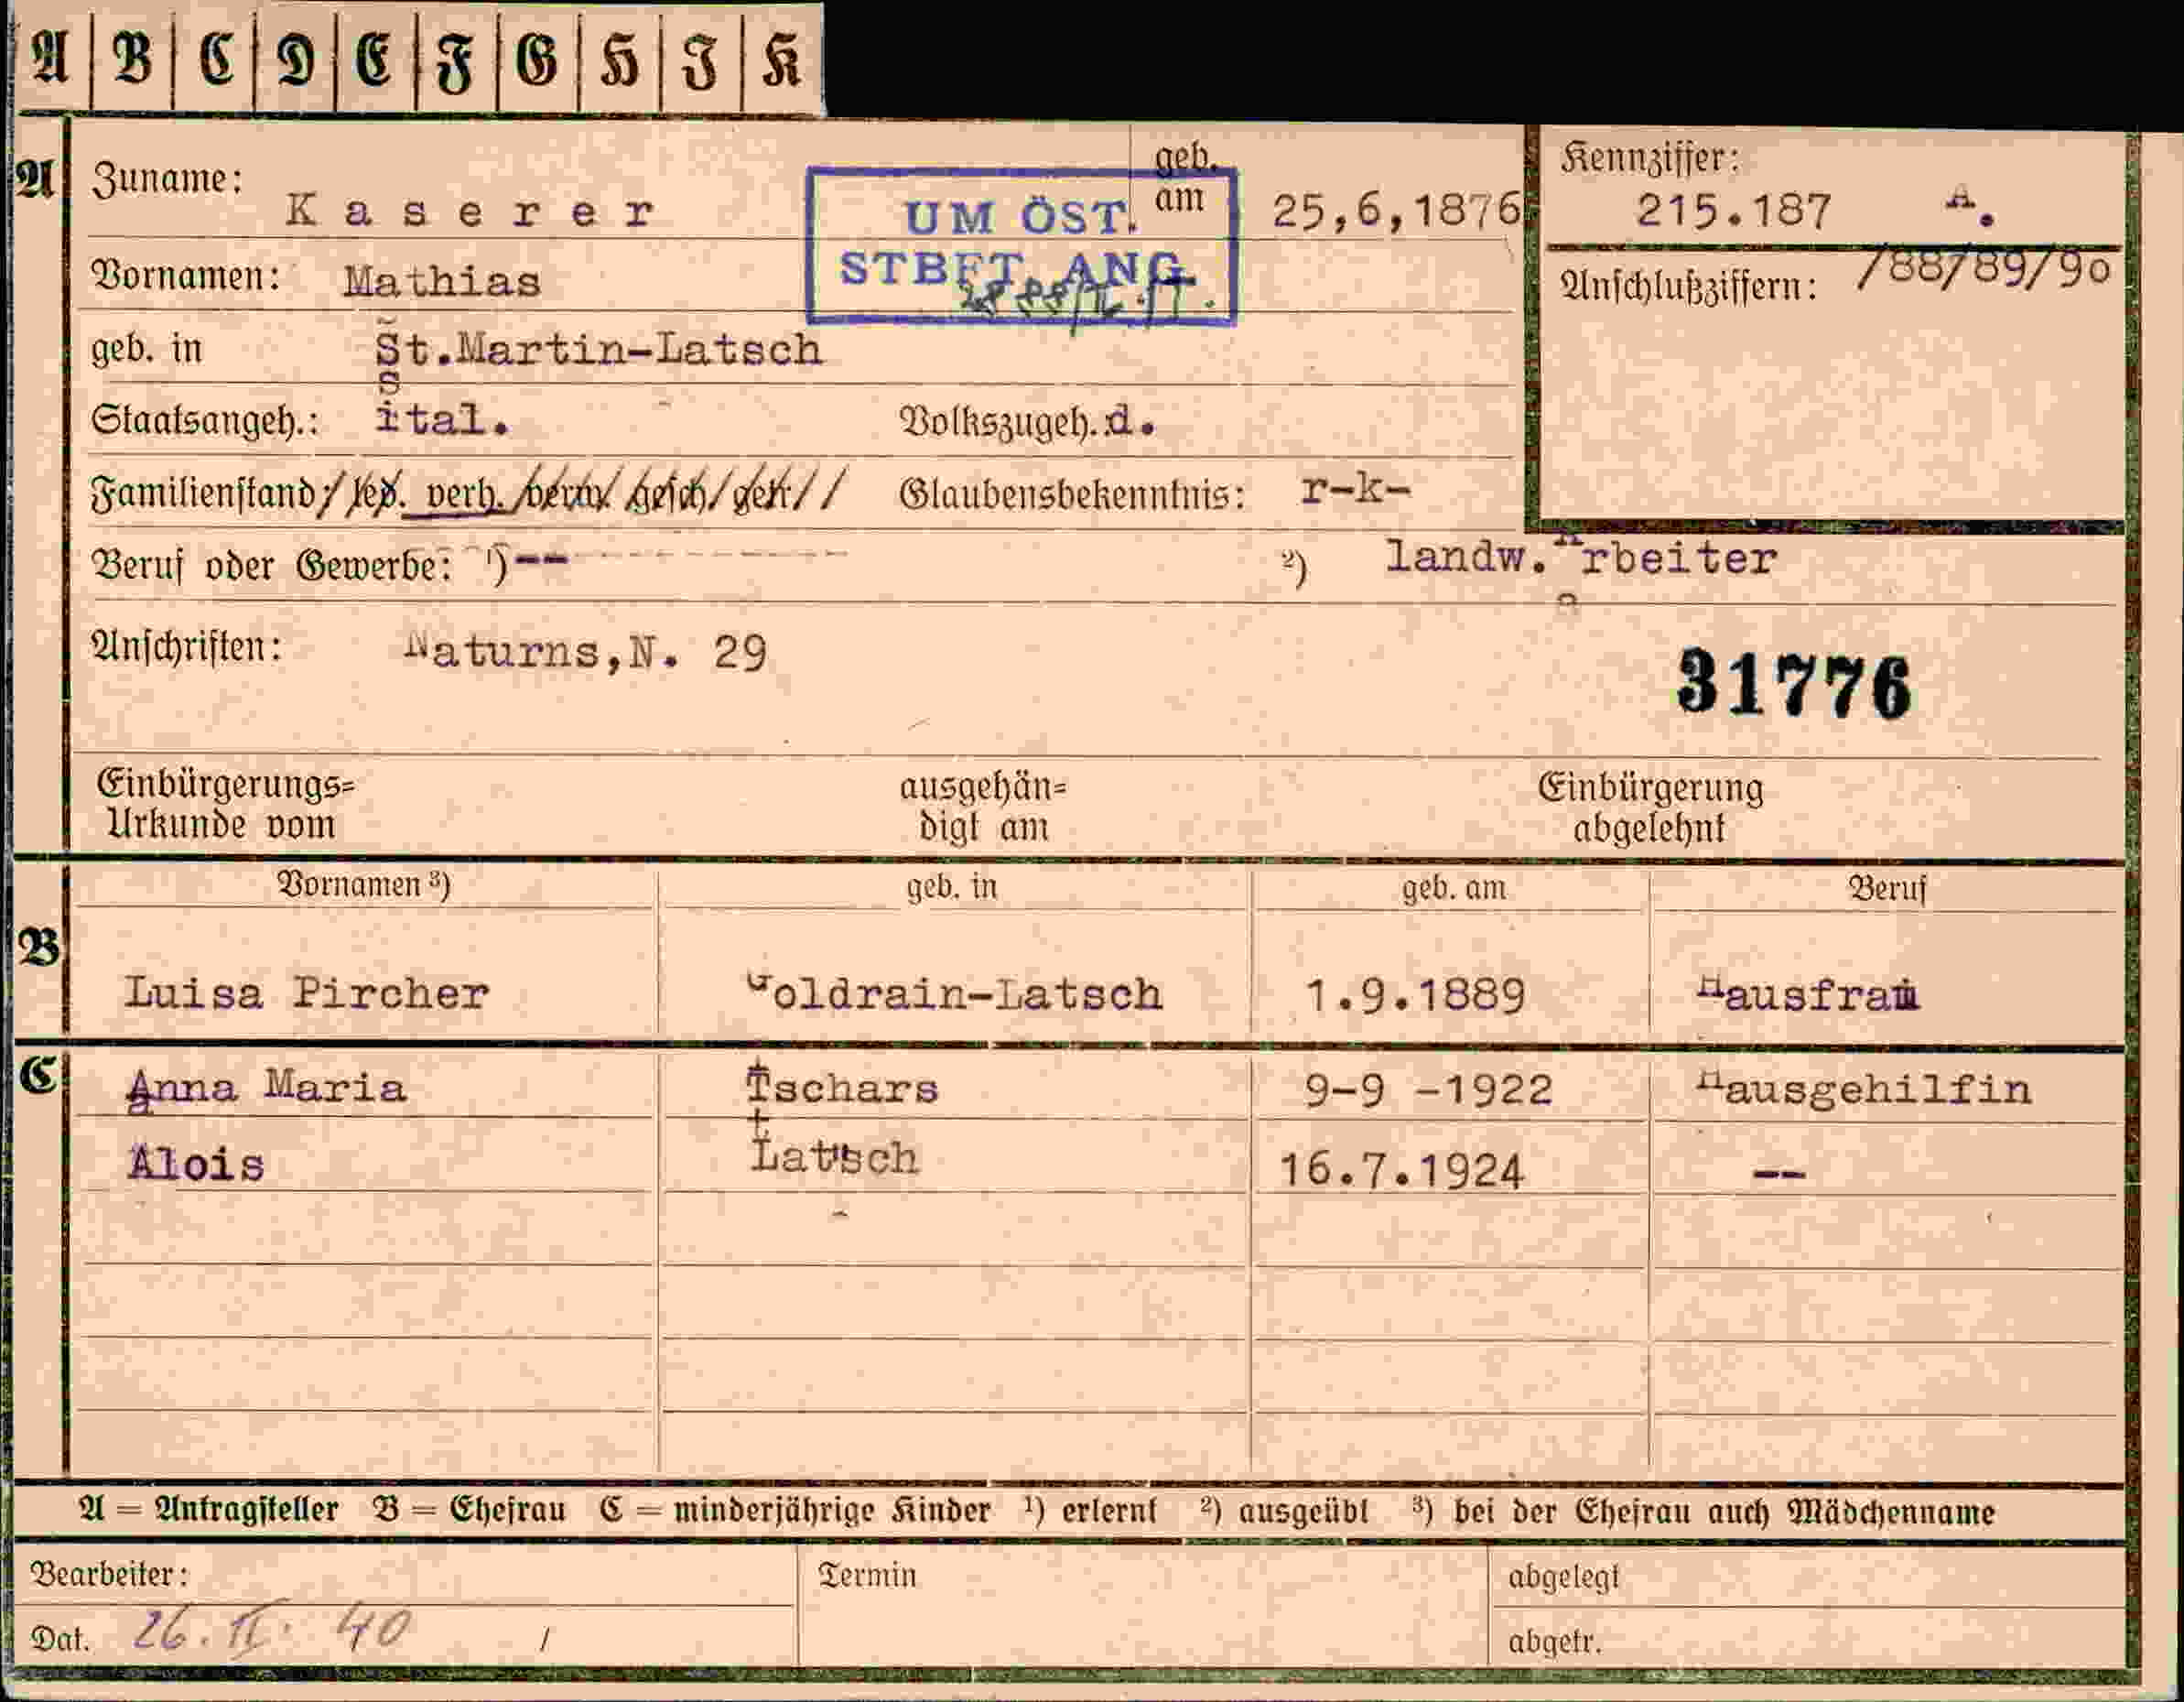 A B C D E F G H I K
A Zuname: Kaserer geb. am 25,6,1876 Kennziffer: 215.187 A.
UM ÖST. STBFT. ANG.
Vornamen: Mathias Anschlußziffern: /88/89/90
geb. in St.Martin-Latsch
Staatsangeh.: ital. Volkszugeh.: d.
Familienstand: led. verh. verw. gesch. getr. Glaubensbekenntnis: r-k-
Beruf oder Gewerbe: ¹) -- ²) landw. Arbeiter
Anschriften: Naturns,N. 29
31776
Einbürgerungs= Urkunde vom ausgehän= digt am Einbürgerung abgelehnt
Vornamen ³) geb. in geb. am Beruf
B Luisa Pircher Goldrain-Latsch 1.9.1889 Hausfrau
C Anna Maria Tschars 9-9 -1922 Hausgehilfin
Alois Latsch 16.7.1924 --
A = Antragsteller B = Ehefrau C = minderjährige Kinder ¹) erlernt ²) ausgeübt ³) bei der Ehefrau auch Mädchenname
Bearbeiter: Termin abgelegt
Dat. 26. II. 40 / abgetr.